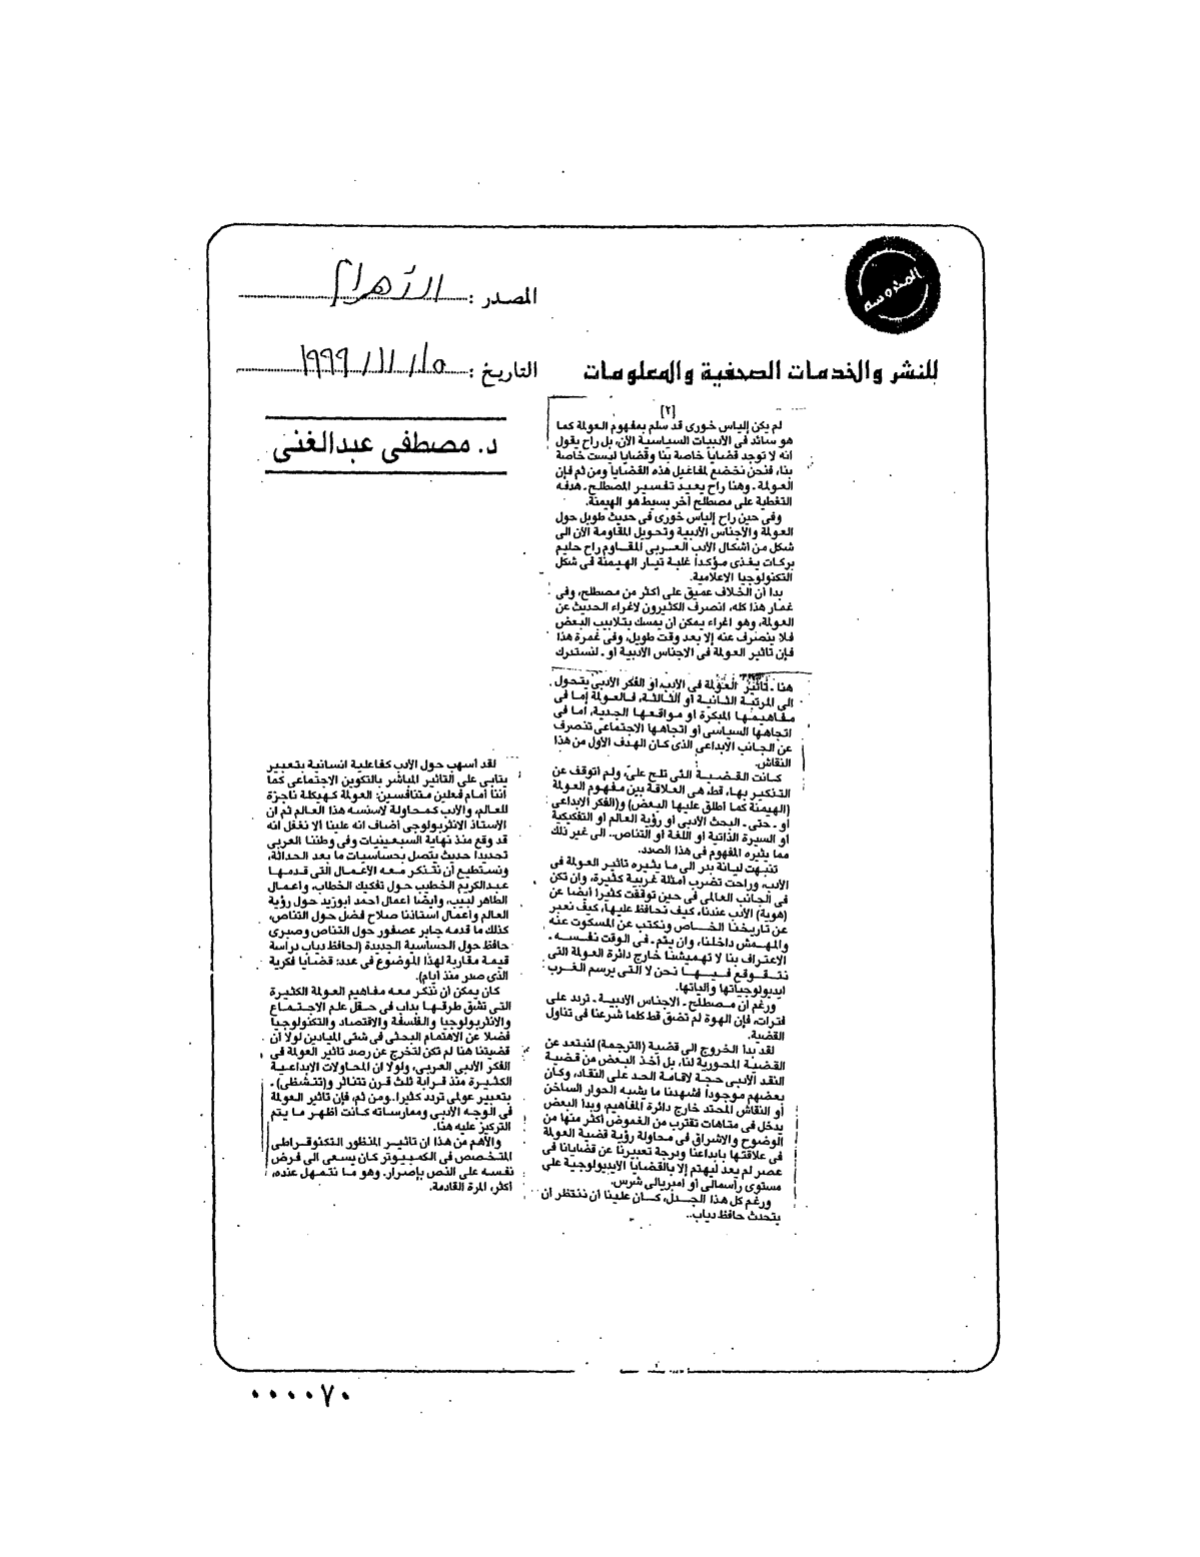 المحروسة
المصدر : الأهرام
للنشر والخدمات الصحفية والمعلومات
التاريخ : ١٩٩٩/١١/١٥
د. مصطفى عبدالغنى
[٢]
لم يكن إلياس خورى قد سلم بمفهوم العولمة كما
هو سائد فى الأدبيات السياسية الآن، بل راح يقول
انه لا توجد قضايا خاصة بنا وقضايا ليست خاصة
بنا، فنحن نخضع لمفاعيل هذه القضايا ومن ثم فإن
العولمة ـ وهنا راح يعيد تفسير المصطلح ـ هدفه
التغطية على مصطلح آخر بسيط هو الهيمنة.
وفى حين راح إلياس خورى فى حديث طويل حول
العولمة والأجناس الأدبية وتحويل المقاومة الآن الى
شكل من اشكال الأدب العربى المقاوم راح حليم
بركات يغذى مؤكدا غلبة تيار الهيمنة فى شكل
التكنولوجيا الإعلامية.
بدا ان الخلاف عميق على أكثر من مصطلح، وفى
غمار هذا كله، انصرف الكثيرون لاغراء الحديث عن
العولمة، وهو اغراء يمكن ان يمسك بتلابيب البعض
فلا ينصرف عنه إلا بعد وقت طويل، وفى غمرة هذا
فإن تاثير العولمة فى الاجناس الأدبية او ـ لنستدرك
هنا ـ تأثير العولمة فى الأدب او الفكر الأدبى يتحول
الى المرتبة الثانية او الثالثة، فالعولمة إما فى
مفاهيمها المبكرة او مواقعها الجدية، أما فى
اتجاهها السياسى او اتجاهها الاجتماعى تنصرف
عن الجانب الابداعى الذى كان الهدف الأول من هذا
النقاش.
كانت القضية التى تلح على، ولم اتوقف عن
التذكير بها، قط، هى العلاقة بين مفهوم العولمة
(الهيمنة كما اطلق عليها البعض) و(الفكر الابداعى
او ـ حتى ـ البحث الأدبى أو رؤية العالم أو التفكيكية
او السيرة الذاتية او اللغة او التناص.. الى غير ذلك
مما يثيره المفهوم فى هذا الصدد.
تنبهت ليانة بدر الى ما يثيره تاثير العولمة فى
الأدب، وراحت تضرب أمثلة غربية كثيرة، وان تكن
فى الجانب العالمى فى حين توقفت كثيرا أيضا عن
(هوية) الأدب عندنا، كيف نحافظ عليها، كيف نعبر
عن تاريخنا الخاص ونكتب عن المسكوت عنه
والمهمش داخلنا، وان يتم ـ فى الوقت نفسه ـ
الاعتراف بنا لا تهميشنا خارج دائرة العولمة التى
نتقوقع فيها نحن لا التى يرسم الغرب
ايديولوجياتها وآلياتها.
ورغم ان مصطلح ـ الاجناس الأدبية ـ تردد على
فترات، فإن الهوة لم تضق قط كلما شرعنا فى تناول
القضية.
لقد بدا الخروج الى قضية (الترجمة) لنبتعد عن
القضية المحورية لنا، بل أخذ البعض من قضية
النقد الأدبى حجة لإقامة الحد على النقاد، وكان
بعضهم موجودا فشهدنا ما يشبه الحوار الساخن
أو النقاش المحتد خارج دائرة المفاهيم، وبدا البعض
يدخل فى متاهات تقترب من الغموض أكثر منها من
الوضوح والإشراق فى محاولة رؤية قضية العولمة
فى علاقتها بابداعنا ودرجة تعبيرنا عن قضايانا فى
عصر لم يعد ليهتم إلا بالقضايا الايديولوجية على
مستوى رأسمالى أو امبريالى شرس.
ورغم كل هذا الجدل، كان علينا ان ننتظر ان
يتحدث حافظ دياب..
لقد اسهب حول الأدب كفاعلية انسانية بتعبير
يتابى على التاثير المباشر بالتكوين الاجتماعى كما
أننا أمام فعلين متنافسين: العولمة كهيكلة ناجزة
للعالم، والأدب كمحاولة لأنسنة هذا العالم ثم ان
الاستاذ الانثربولوجى أضاف انه علينا الا نغفل انه
قد وقع منذ نهاية السبعينيات وفى وطننا العربى
تحديدا حديث يتصل بحساسيات ما بعد الحداثة،
ونستطيع ان نتذكر معه الأعمال التى قدمها
عبدالكريم الخطيب حول تفكيك الخطاب، وأعمال
الطاهر لبيب، وأيضا أعمال احمد ابوزيد حول رؤية
العالم وأعمال استاذنا صلاح فضل حول التناص،
كذلك ما قدمه جابر عصفور حول التناص وصبرى
حافظ حول الحساسية الجديدة (لحافظ دياب دراسة
قيمة مقاربة لهذا الموضوع فى عدد: قضايا فكرية
الذى صدر منذ أيام).
كان يمكن ان نتذكر معه مفاهيم العولمة الكثيرة
التى تشق طرقها بدأب فى حقل علم الاجتماع
والانثربولوجيا والفلسفة والاقتصاد والتكنولوجيا
فضلا عن الاهتمام البحثى فى شتى الميادين لولا ان
قضيتنا هنا لم تكن لتخرج عن رصد تاثير العولمة فى
الفكر الأدبى العربى، ولولا ان المحاولات الابداعية
الكثيرة منذ قرابة ثلث قرن تتناثر و(تتشظى) ـ
بتعبير عولمى تردد كثيرا ـ ومن ثم، فإن تاثير العولمة
فى الوجه الأدبى وممارساته كانت اظهر ما يتم
التركيز عليه هنا.
والأهم من هذا ان تاثير المنظور التكنوقراطى
المتخصص فى الكمبيوتر كان يسعى الى فرض
نفسه على النص بإصرار. وهو ما نتمهل عنده،
أكثر، المرة القادمة.
٠٠٠٠٧٠